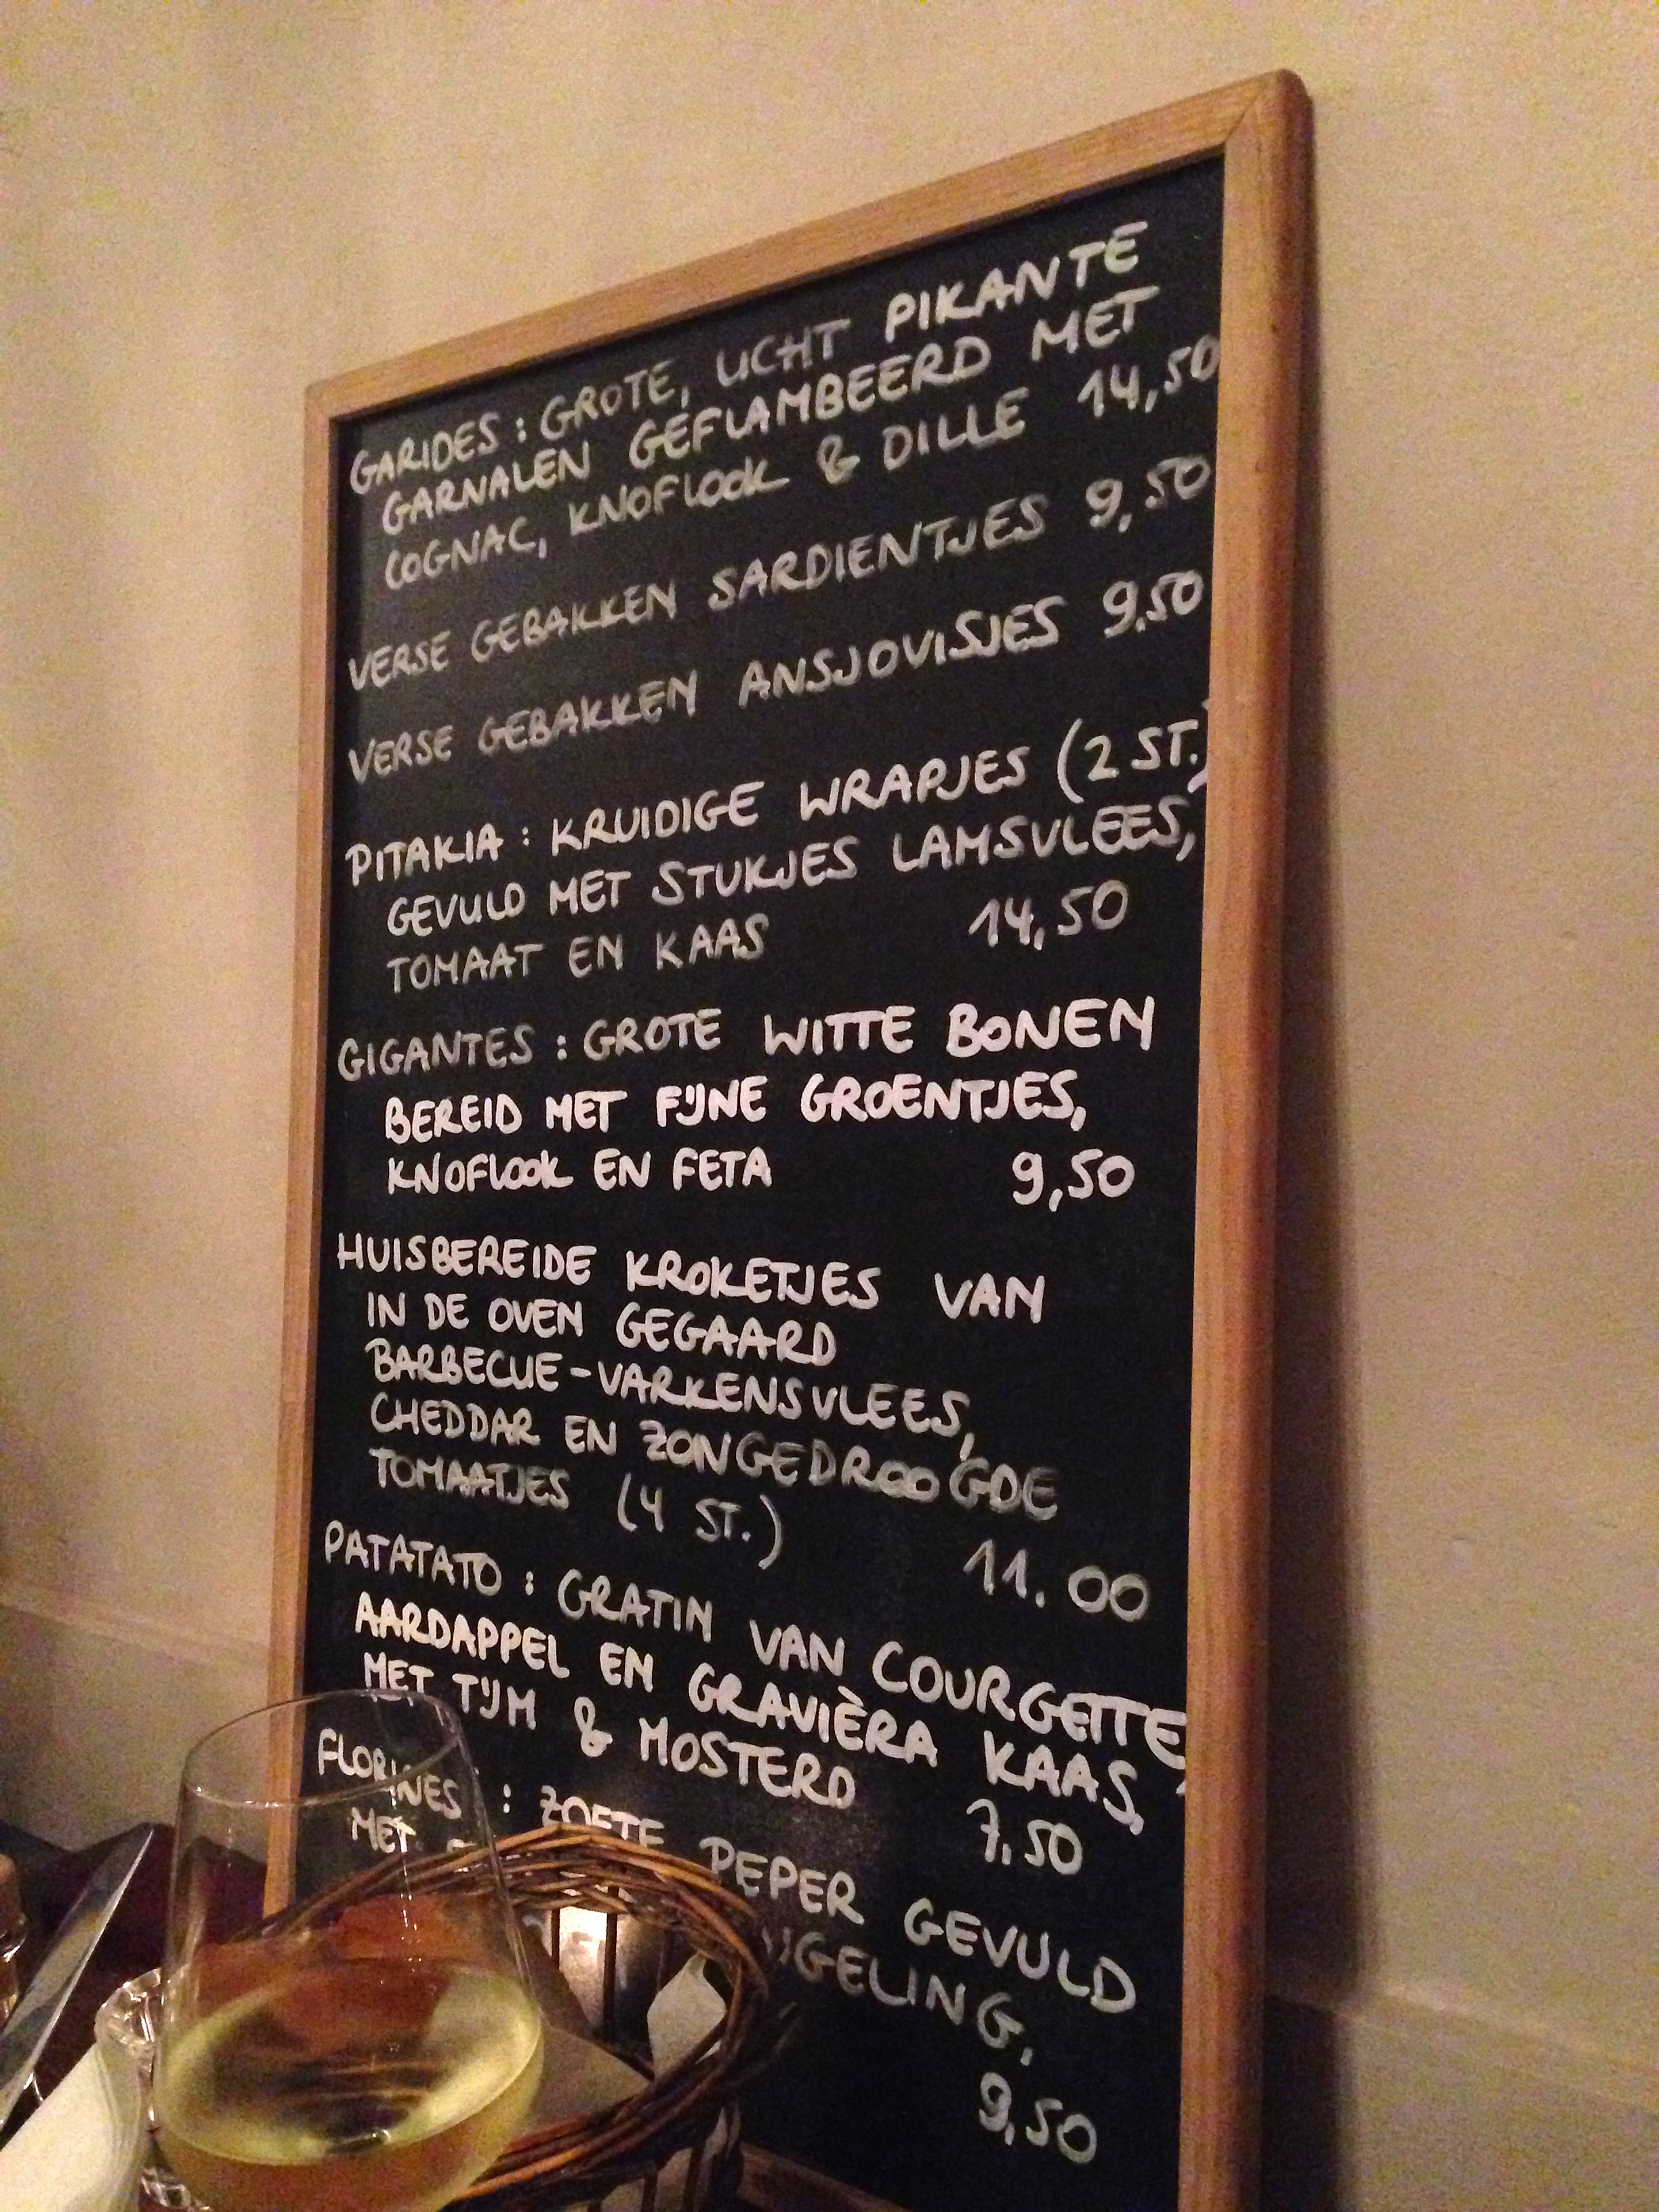 GARIDES : GROTE, LICHT PIKANTE
GARNALEN GEFLAMBEERD MET
COGNAC, KNOFLOOK & DILLE 14,50
VERSE GEBAKKEN SARDIENTJES 9,50
VERSE GEBAKKEN ANSJOVISJES 9.50
PITAKIA : KRUIDIGE WRAPJES (2 ST.)
GEVULD MET STUKJES LAMSVLEES,
TOMAAT EN KAAS 14,50
GIGANTES : GROTE WITTE BONEN
BEREID MET FIJNE GROENTJES,
KNOFLOOK EN FETA 9,50
HUISBEREIDE KROKETJES VAN
IN DE OVEN GEGAARD
BARBECUE-VARKENSVLEES,
CHEDDAR EN ZONGEDROOGDE
TOMAATJES (4 ST.) 11.00
PATATATO : GRATIN VAN COURGETTE,
AARDAPPEL EN GRAVIÈRA KAAS,
MET TIJM & MOSTERD 7.50
FLORINES : ZOETE PEPER GEVULD
MET
9,50